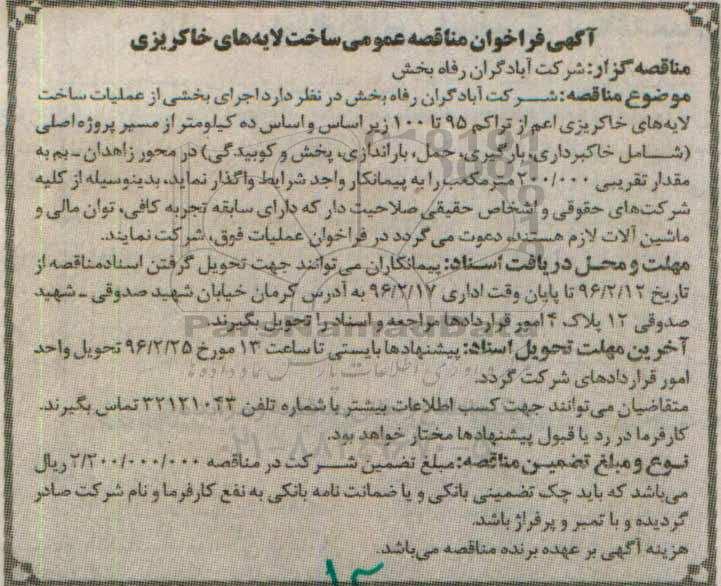 آگهی فراخوان مناقصه عمومی ساخت لایه‌های خاکریزی
مناقصه گزار: شرکت آبادگران رفاه بخش
موضوع مناقصه: شرکت آبادگران رفاه بخش در نظر دارد اجرای بخشی از عملیات ساخت
لایه‌های خاکریزی اعم از تراکم ۹۵ تا ۱۰۰ زیر اساس و اساس ده کیلومتر از مسیر پروژه اصلی
(شامل خاکبرداری، بارگیری، حمل، باراندازی، پخش و کوبیدگی) در محور زاهدان - بم به
مقدار تقریبی ۲۰۰/۰۰۰ مترمکعب را به پیمانکار واجد شرایط واگذار نماید، بدینوسیله از کلیه
شرکت‌های حقوقی و اشخاص حقیقی صلاحیت دار که دارای سابقه تجربه کافی، توان مالی و
ماشین آلات لازم هستند، دعوت می گردد در فراخوان عملیات فوق، شرکت نمایند.
مهلت و محل دریافت اسناد: پیمانکاران می توانند جهت تحویل گرفتن اسناد مناقصه از
تاریخ ۹۶/۲/۱۲ تا پایان وقت اداری ۹۶/۲/۱۷ به آدرس کرمان خیابان شهید صدوقی - شهید
صدوقی ۱۲ پلاک ۴ امور قراردادها مراجعه و اسناد را تحویل بگیرند.
آخرین مهلت تحویل اسناد: پیشنهادها بایستی تا ساعت ۱۳ مورخ ۹۶/۲/۲۵ تحویل واحد
امور قراردادهای شرکت گردد.
متقاضیان می توانند جهت کسب اطلاعات بیشتر با شماره تلفن ۳۲۱۲۱۰۴۳ تماس بگیرند.
کارفرما در رد یا قبول پیشنهادها مختار خواهد بود.
نوع و مبلغ تضمین مناقصه: مبلغ تضمین شرکت در مناقصه ۲/۲۰۰/۰۰۰/۰۰۰ ریال
می‌باشد که باید چک تضمینی بانکی و یا ضمانت نامه بانکی به نفع کارفرما و نام شرکت صادر
گردیده و با تمبر و پرفراژ باشد.
هزینه آگهی بر عهده برنده مناقصه می‌باشد.